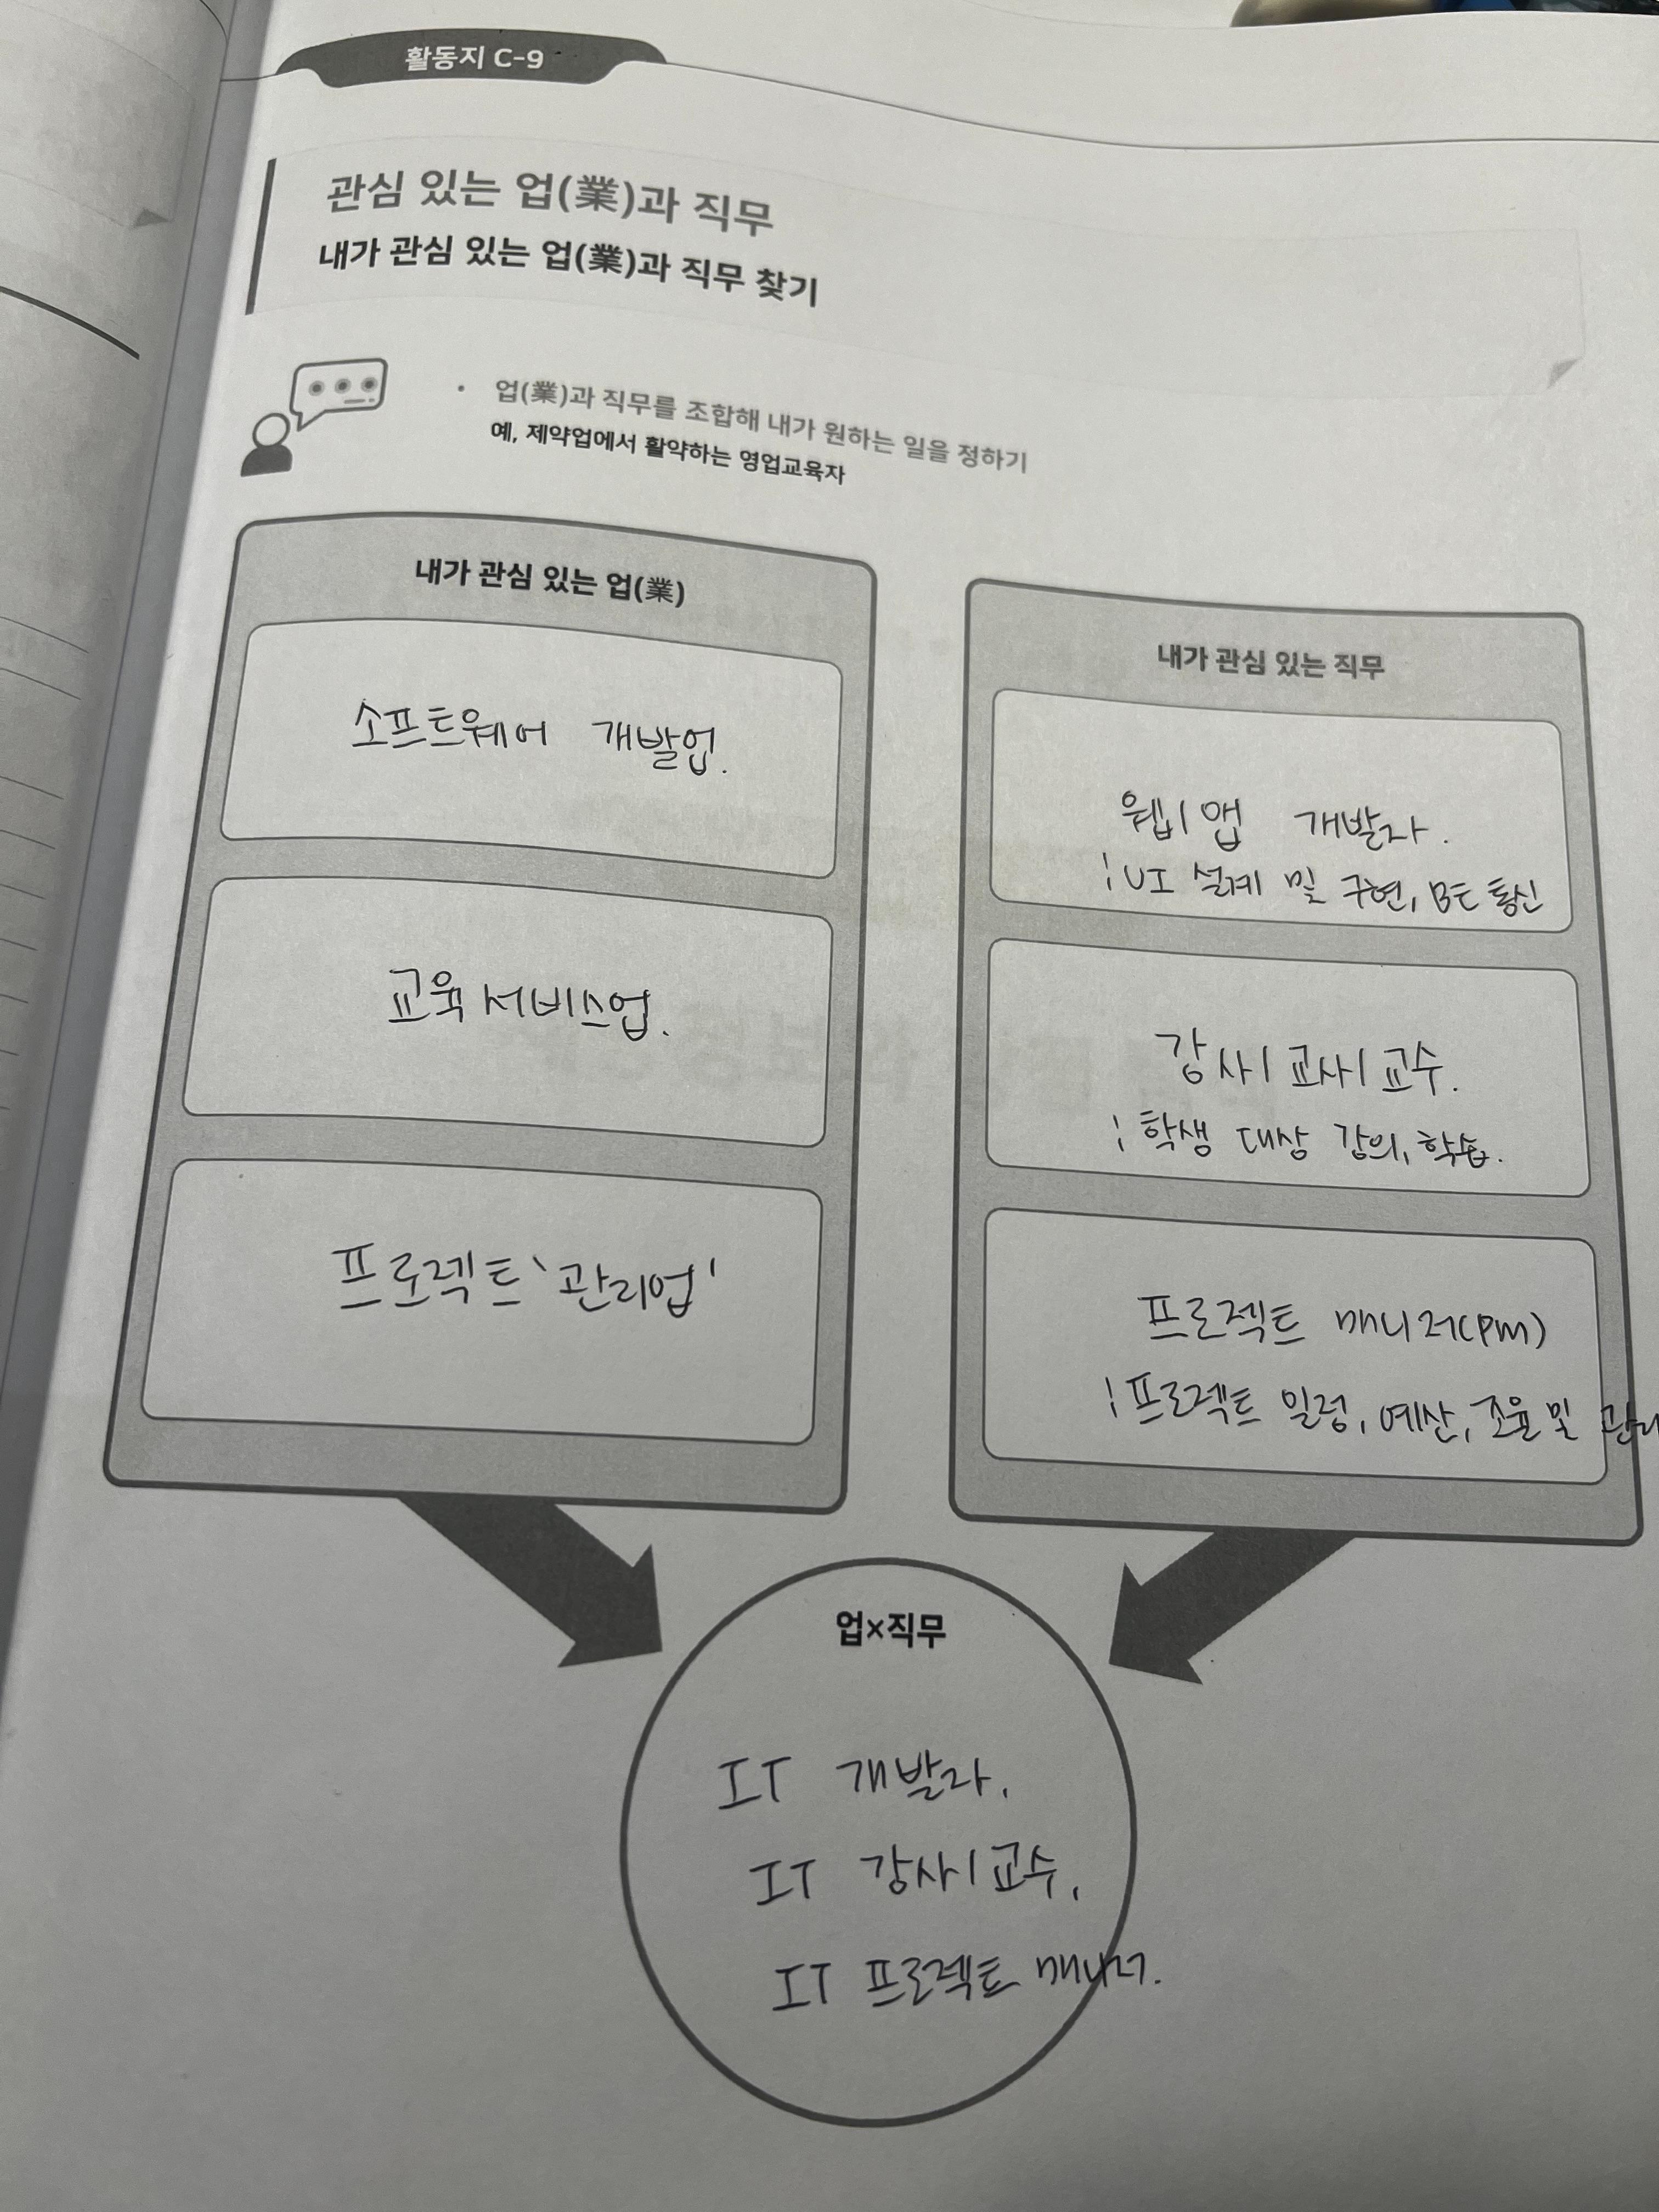 활동지 C-9
관심 있는 업(業)과 직무
내가 관심 있는 업(業)과 직무 찾기
• 업(業)과 직무를 조합해 내가 원하는 일을 정하기
예, 제약업에서 활약하는 영업교육자
내가 관심 있는 업(業)
소프트웨어 개발업.
교육서비스업.
프로젝트 '관리업'
내가 관심 있는 직무
웹/앱 개발자.
; UI 설계 및 구현, BE 통신
강사/교사/교수.
; 학생 대상 강의, 학습.
프로젝트 매니저(PM)
; 프로젝트 일정, 예산, 조율 및 관리
업×직무
IT 개발자,
IT 강사/교수,
IT 프로젝트 매니저.